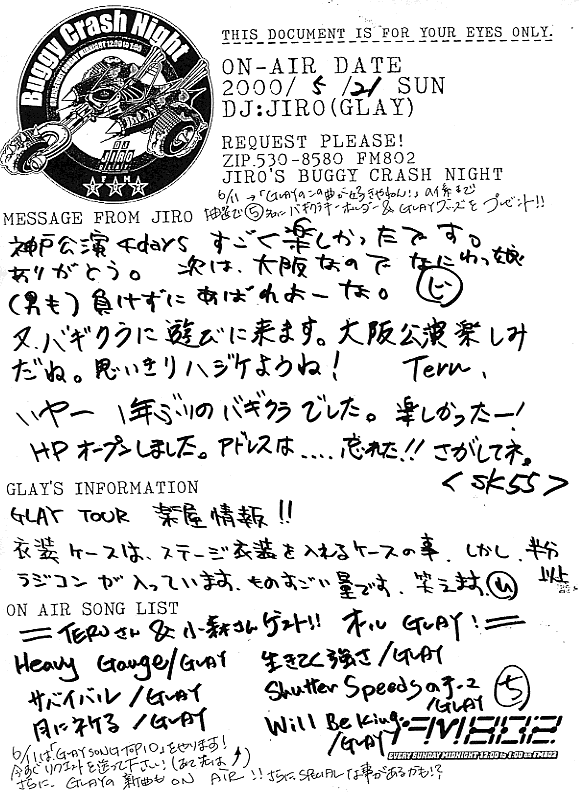 Buggy Crash Night
EVERY SUNDAY MIDNIGHT 12:00 to 1:00
DJ
JIRO
GLAY
FM
802
THIS DOCUMENT IS FOR YOUR EYES ONLY.
ON-AIR DATE
2000/ 5 /21 SUN
DJ:JIRO(GLAY)
REQUEST PLEASE!
ZIP.530-8580 FM802
JIRO'S BUGGY CRASH NIGHT
6/11→「GLAYのこの曲が好きやねん!」の係まで
抽選で⑤名にバギクラキーホルダー&GLAYグッズをプレゼント!!
MESSAGE FROM JIRO
神戸公演4days すごく楽しかったです。
ありがとう。 次は、大阪なので なにわっ娘
(男も)負けずに あばれよーな。 じ
又、バギクラに遊びに来ます。大阪公演楽しみ
だね。思いきりハジケようね! Teru、
いやー 1年ぶりのバギクラでした。楽しかったー!
HPオープンしました。アドレスは....忘れた!!さがしてネ。
<SK55>
GLAY'S INFORMATION
GLAY TOUR 楽屋情報!!
衣装ケースは、ステージ衣装を入れるケースの事、しかし、半分以上
ラジコンが入っています、ものすごい量です、笑えます。
ON AIR SONG LIST
=TERUさん&小森さんゲスト!! オール GLAY!=
Heavy Gauge/GLAY 生きてく強さ/GLAY
サバイバル/GLAY Shutter Speedsのテーマ/GLAY
月に祈る/GLAY Will Be King/GLAY
ち
FM802
EVERY SUNDAY MIDNIGHT 12:00 to 1:00 on FM802
6/11は「GLAY SONG TOP10」をやります!
今すぐリクエストを送って下さい!(あて先は↑)
さらに、GLAYの新曲もON AIR!!さらにSPECIALな事があるかも!?